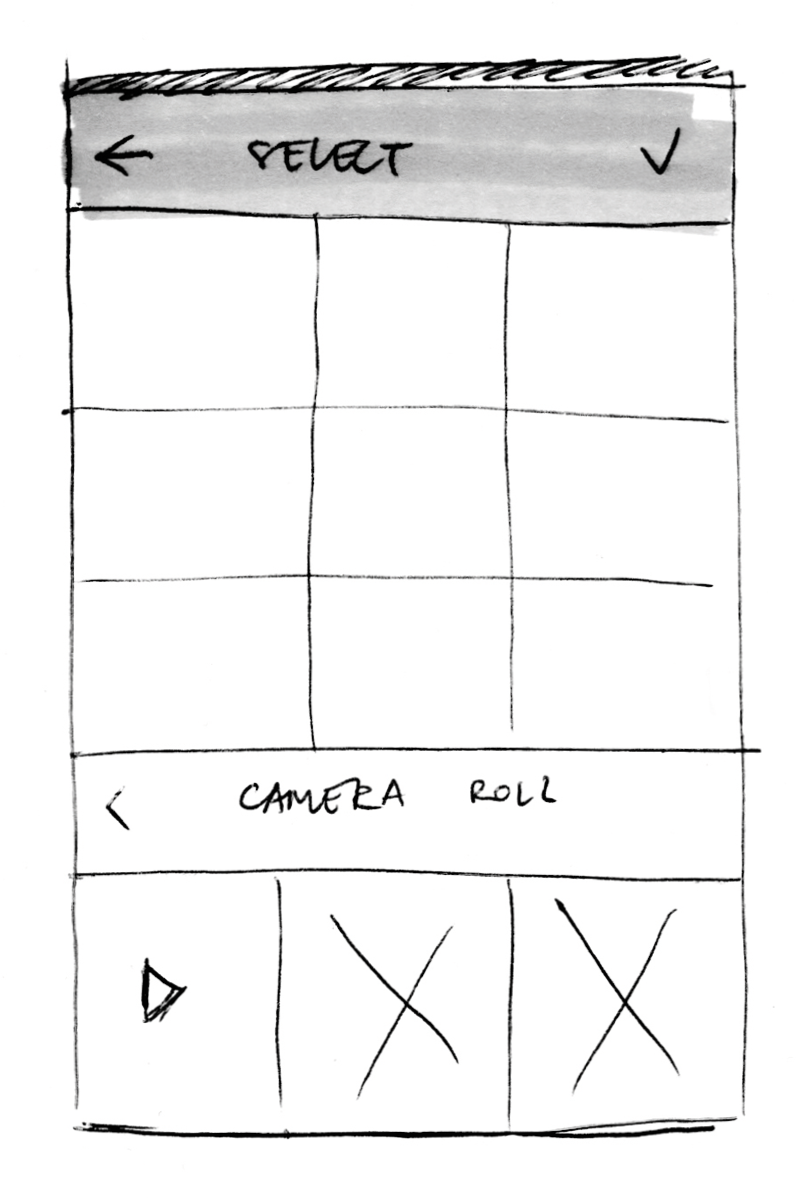 SELECT
CAMERA ROLL